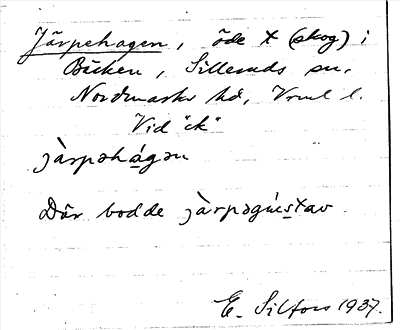 Järpehagen, öde x (skog) i
Bäcken, Silleruds sn,
Nordmarks hd, Vrml l.
Vid "ck"
jàrpəhágən
Där bodde jàrpəgústav
E. Silfors 1937.